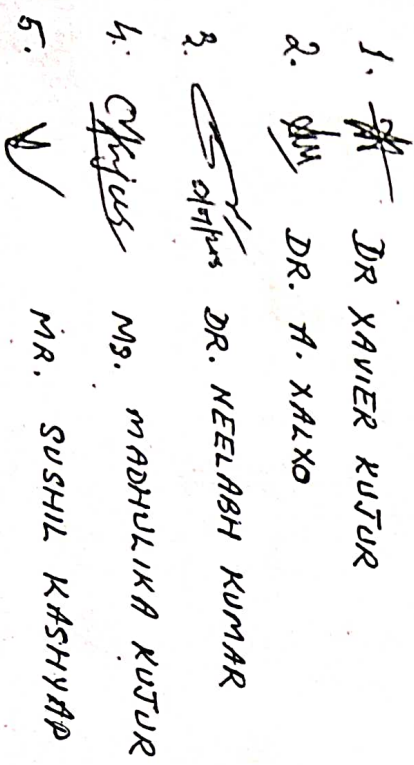 1. DR XAVIER KUJUR
2. DR. A. XALXO
3. DR. NEELABH KUMAR
4. MS. MADHULIKA KUJUR
5. MR. SUSHIL KASHYAP